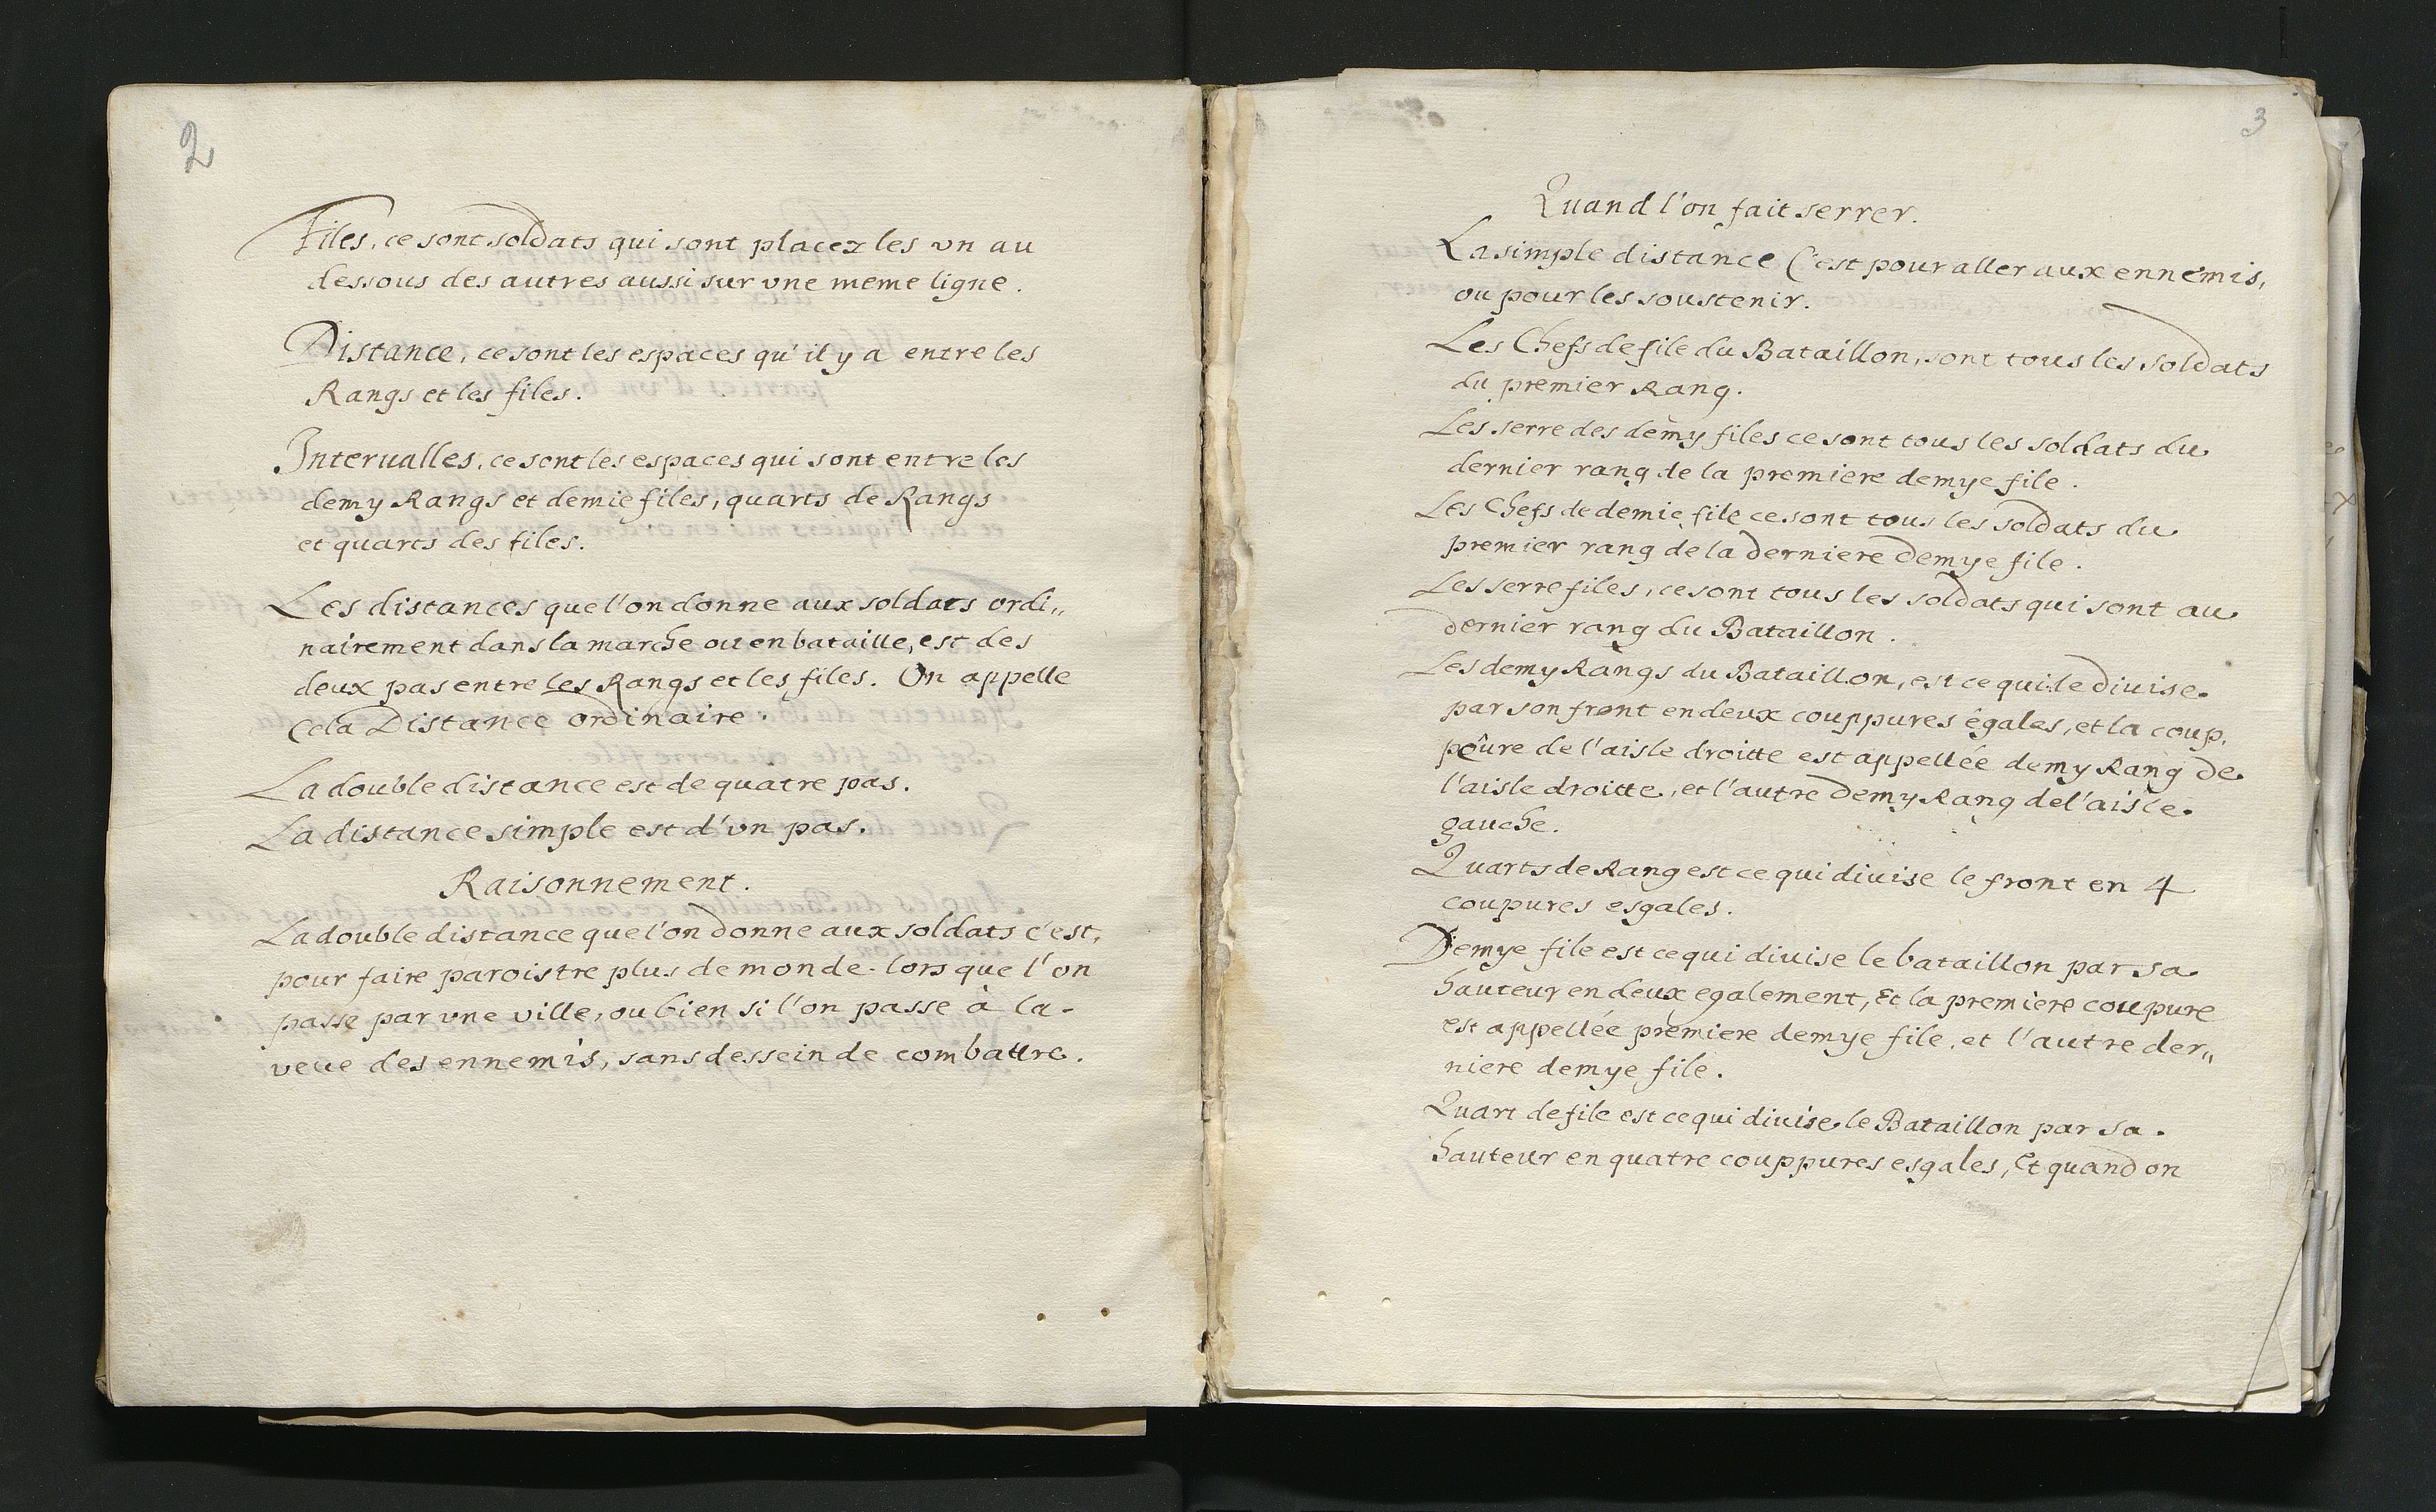 2
Files, ce sont soldats qui sont placez les vn au
dessous des autres aussi sur vne meme ligne.
Distance, ce sont les espaces qu'il y a entre les
Rangs et les files.
Interualles, ce sont les espaces qui sont entre les
demy Rangs et demie files, quarts de Rangs
et quarts des files.
Les distances que l'on donne aux soldats ordi„
nairement dans la marche ou en bataille, est des
deux pas entre les Rangs et les files. On appelle
Cela Distance ordinaire.
La double distance est de quatre pas.
La distance simple est d'vn pas.
Raisonnement.
La double distance que l'on donne aux soldats c'est,
pour faire paroistre plus de monde. lors que l'on
passe par vne ville, ou bien si l'on passe à la-
veue des ennemis, sans dessein de combattre.
3
Quand l'on fait serrer.
La simple distance C'est pour aller aux ennemis,
ou pour les soustenir.
Les Chefs de file du Bataillon, sont tous les soldats
du premier Rang.
Les serre des demy files ce sont tous les soldats du
dernier rang de la premiere demye file.
Les Chefs de demie file ce sont tous les soldats du
premier rang de la derniere demye file.
Les serre files, ce sont tous les soldats qui sont au
dernier rang du Bataillon.
Les demy Rangs du Bataillon, est ce qui le diuise
par son front en deux couppures égales, et la coup,
pure de l'aisle droitte est appellée demy Rang de
l'aisle droitte, et l'autre demy Rang de l'aisle
gauche.
Quarts de Rang est ce qui diuise le front en 4
coupures esgales.
Demye file est ce qui diuise le bataillon par sa
hauteur en deux egalement, Et la premiere coupure
est appellée premiere demye file, et l'autre der„
niere demye file.
Quart de file est ce qui diuise le Bataillon par sa.
hauteur en quatre couppures esgales, Et quand on